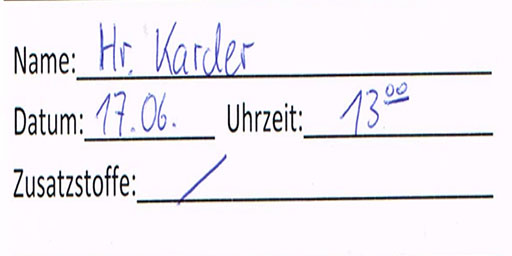 Name: Hr. Karder
Datum: 17.06. Uhrzeit: 13⁰⁰
Zusatzstoffe: /